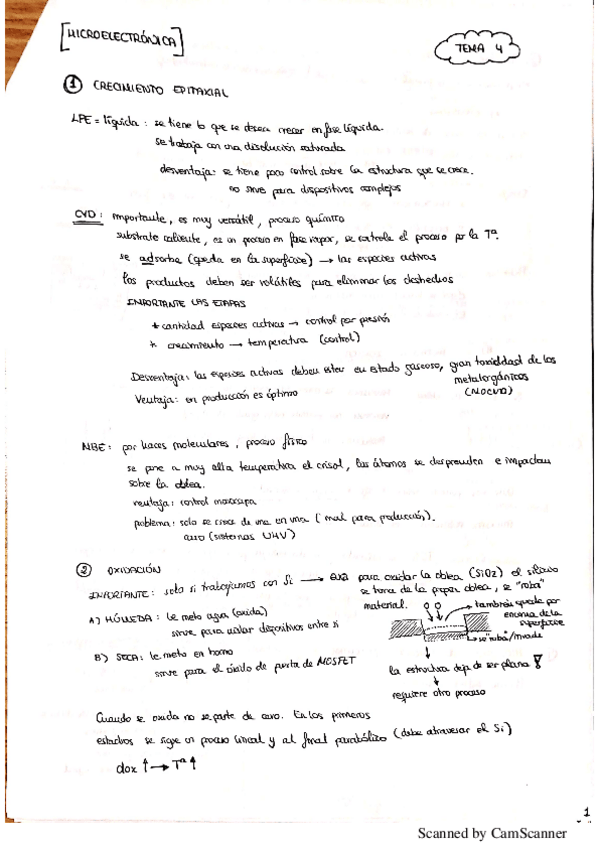 [MICROELECTRÓNICA]
TEMA 4
① CRECIMIENTO EPITAXIAL
LPE = líquida : se tiene lo que se desea crecer en fase líquida.
se trabaja con una disolución saturada
desventaja: se tiene poco control sobre la estructura que se crece.
no sirve para dispositivos complejos
CVD: importante, es muy versátil, proceso químico
substrato caliente, es un proceso en fase vapor, se controla el proceso por la Tª.
se adsorbe (queda en la superficie) → las especies activas
los productos deben ser volátiles para eliminar los deshechos
IMPORTANTE LAS ETAPAS
* cantidad especies activas → control por presión
* crecimiento → temperatura (control)
Desventaja: las especies activas deben estar en estado gaseoso, gran toxicidad de los
metalorgánicos
(MOCVD)
Ventaja: en producción es óptimo
MBE: por haces moleculares, proceso físico
se pone a muy alta temperatura el crisol, los átomos se desprenden e impactan
sobre la oblea.
ventaja: control monocapa
problema: solo se crece de una en una (mal para producción).
caro (sistemas UHV)
② OXIDACIÓN
IMPORTANTE: solo si trabajamos con Si → para oxidar la oblea (SiO2) el silicio
se toma de la propia oblea, se "roba"
material.
también queda por
encima de la
superficie
se "roba"/invade
A) HÚMEDA: le meto agua (oxida)
sirve para aislar dispositivos entre sí
B) SECA: le meto en horno
sirve para el óxido de puerta de MOSFET
la estructura deja de ser plana !
requiere otro proceso
Cuando se oxida no se parte de cero. En los primeros
estadios se sigue un proceso lineal y al final parabólico (debe atravesar el Si)
dox ↑ → Tª ↑
1
Scanned by CamScanner